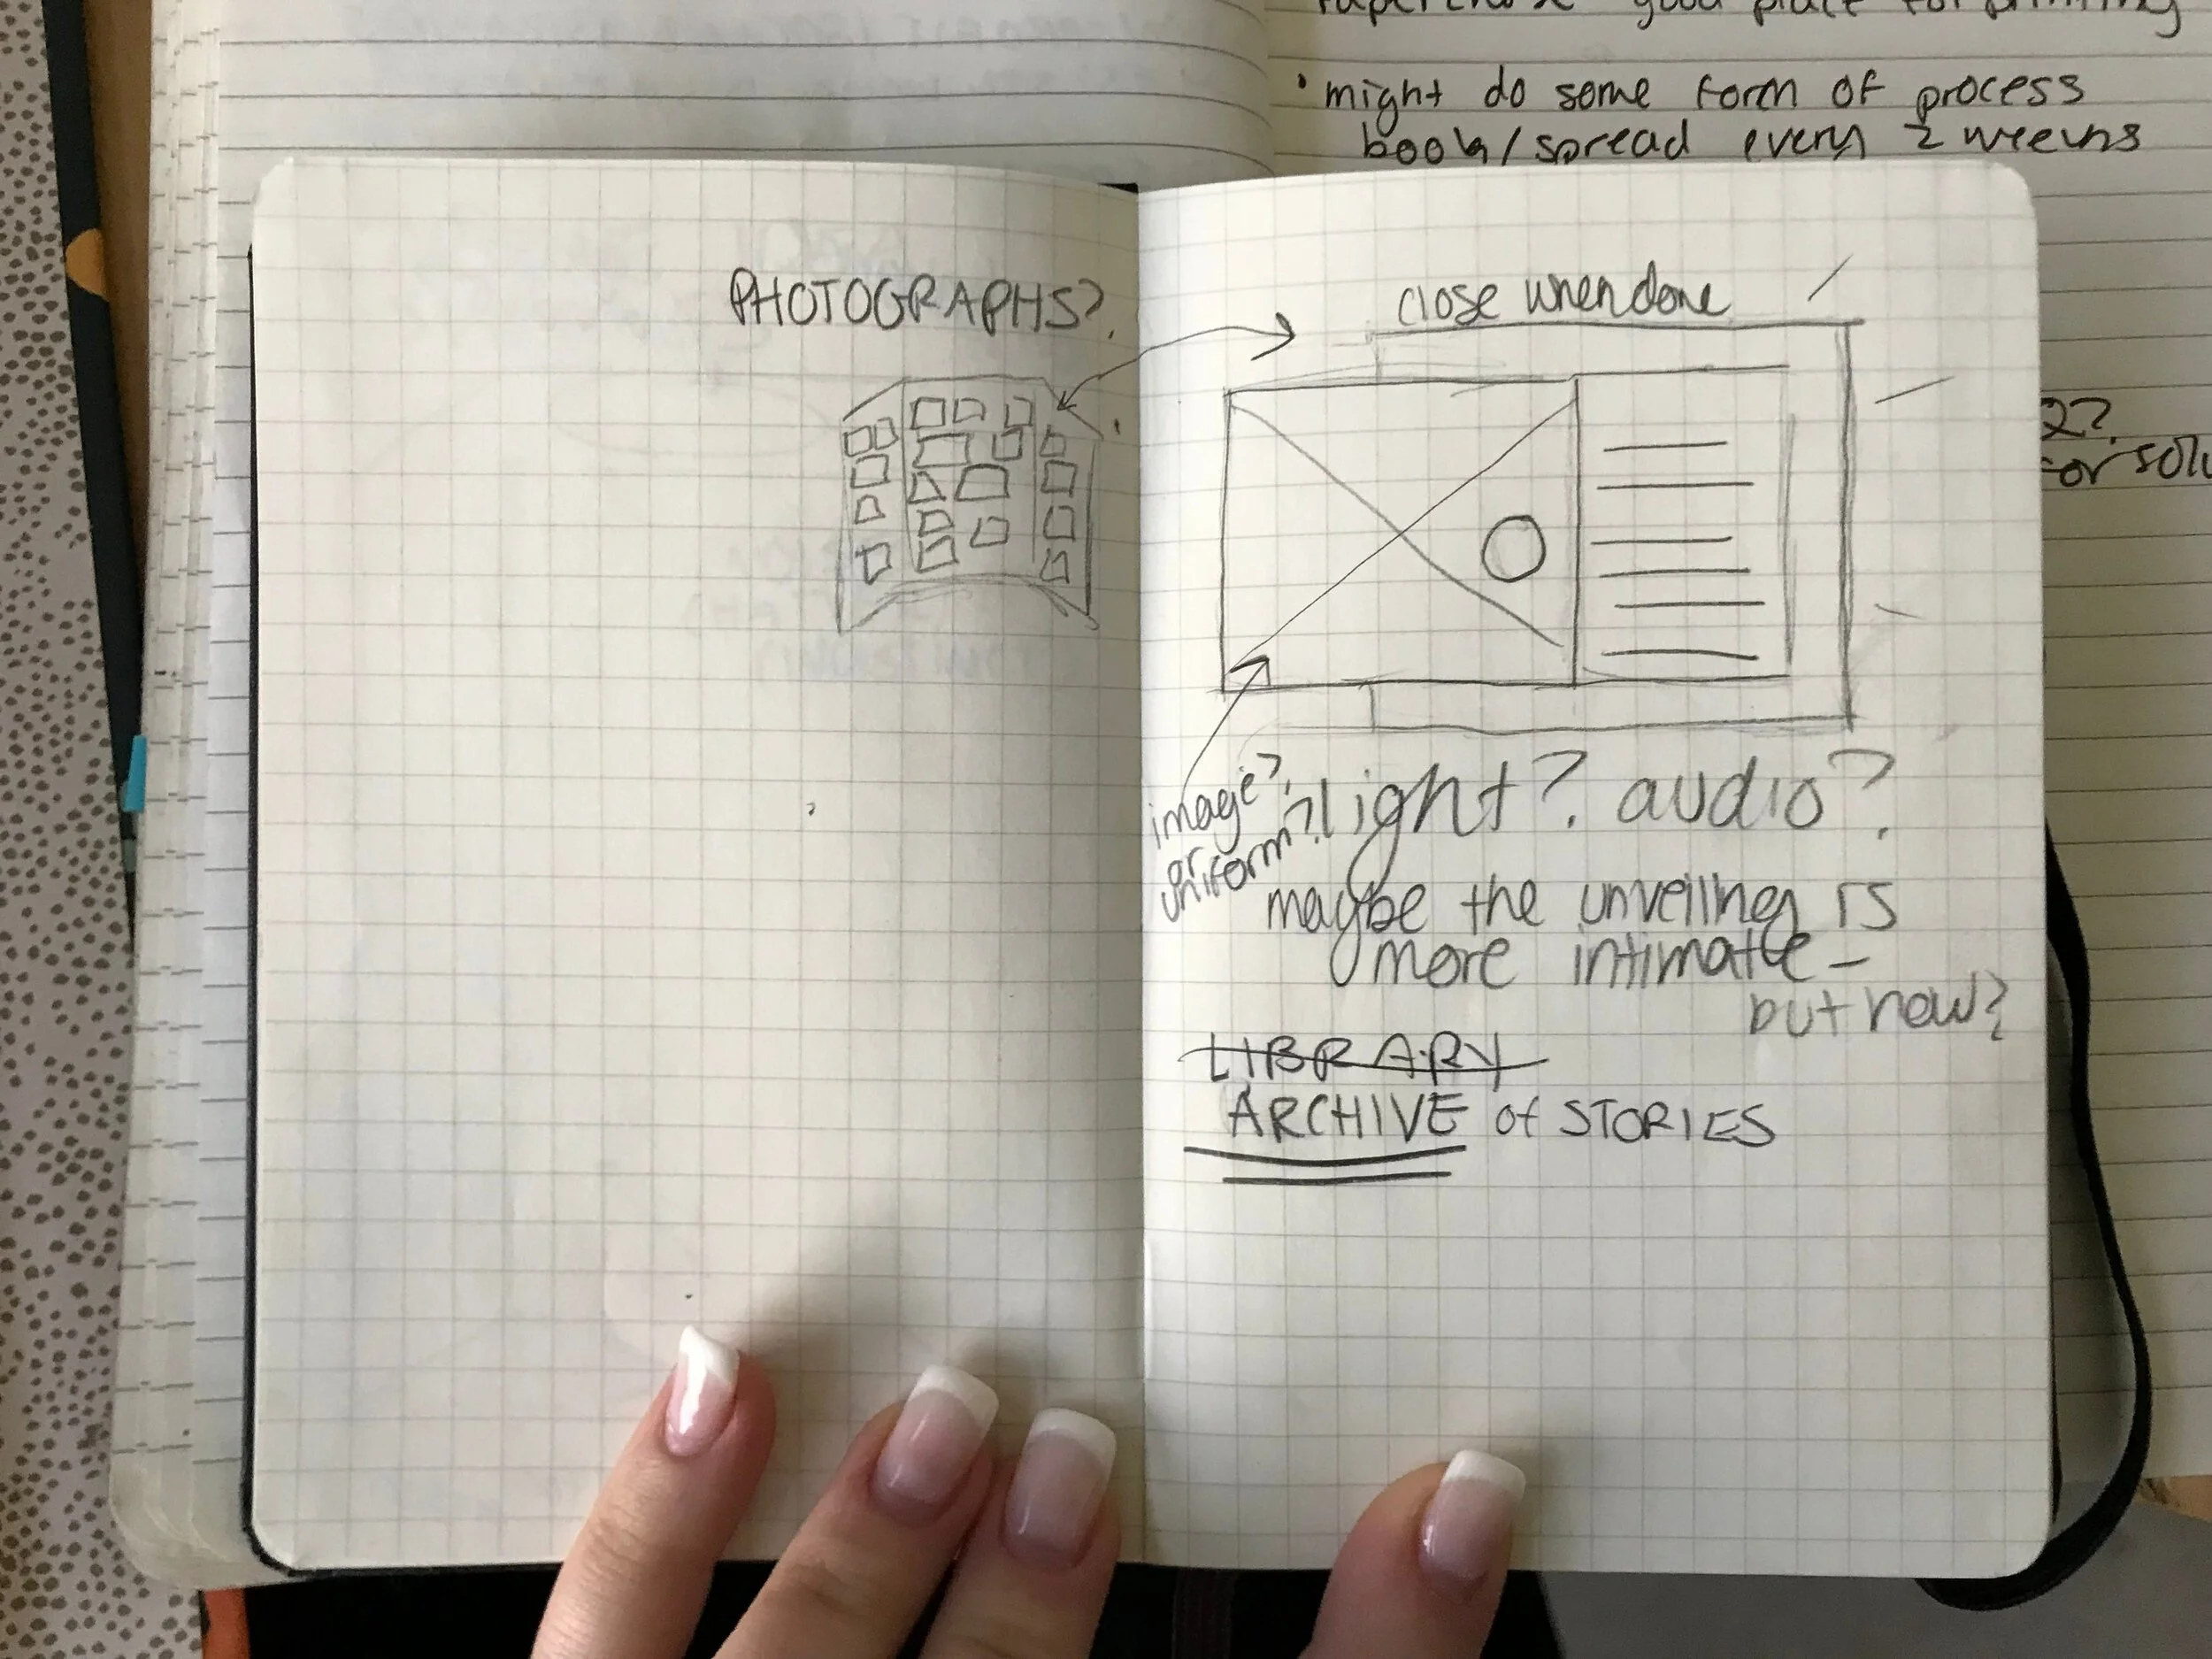 good place for printing
• might do some form of process
book/spread every 2 weeks
PHOTOGRAPHS?
close when done
2?
for solu
image?
or
uniform?
light? audio?
maybe the unveiling is
more intimate –
but how?
LIBRARY
ARCHIVE of STORIES